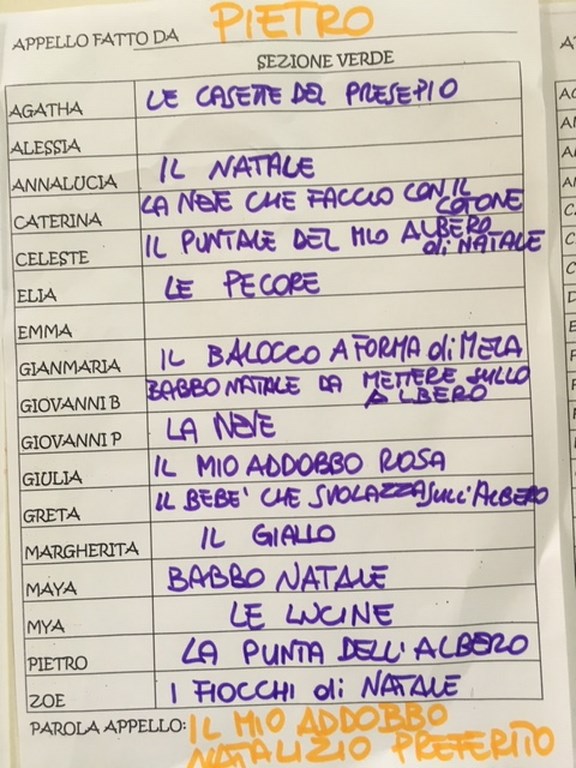 APPELLO FATTO DA PIETRO
SEZIONE VERDE
AGATHA LE CASETTE DEL PRESEPIO
ALESSIA
ANNALUCIA IL NATALE
CATERINA LA NEVE CHE FACCIO CON IL
COTONE
CELESTE IL PUNTALE DEL MIO ALBERO
di NATALE
ELIA LE PECORE
EMMA
GIANMARIA IL BALOCCO A FORMA di MELA
GIOVANNI B BABBO NATALE DA METTERE SULLO
ALBERO
GIOVANNI P LA NEVE
GIULIA IL MIO ADDOBBO ROSA
GRETA IL BEBE' CHE SVOLAZZA SULL'ALBERO
MARGHERITA IL GIALLO
MAYA BABBO NATALE
MYA LE LUCINE
PIETRO LA PUNTA DELL'ALBERO
ZOE I FIOCCHI di NATALE
PAROLA APPELLO: IL MIO ADDOBBO
NATALIZIO PREFERITO